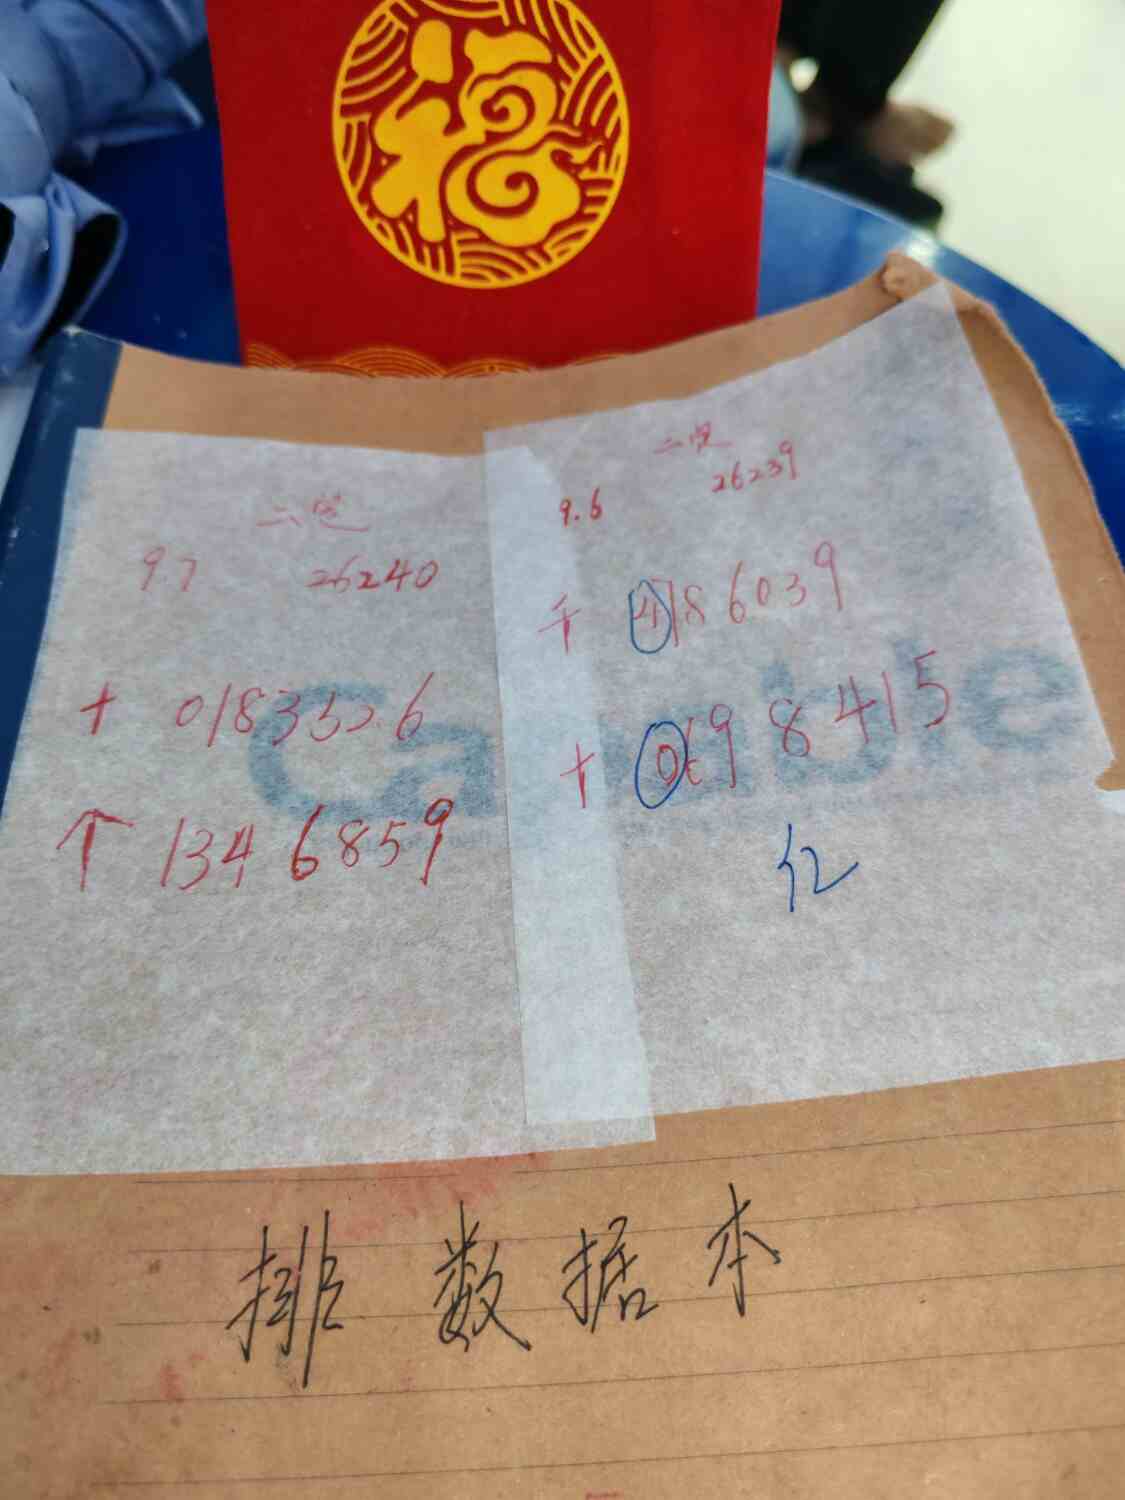 福
二定
9.7 26240
十 0183526
个 1346859
二定
26239
9.6
千 4786039
十 0698415
亿
Camble
排数据本